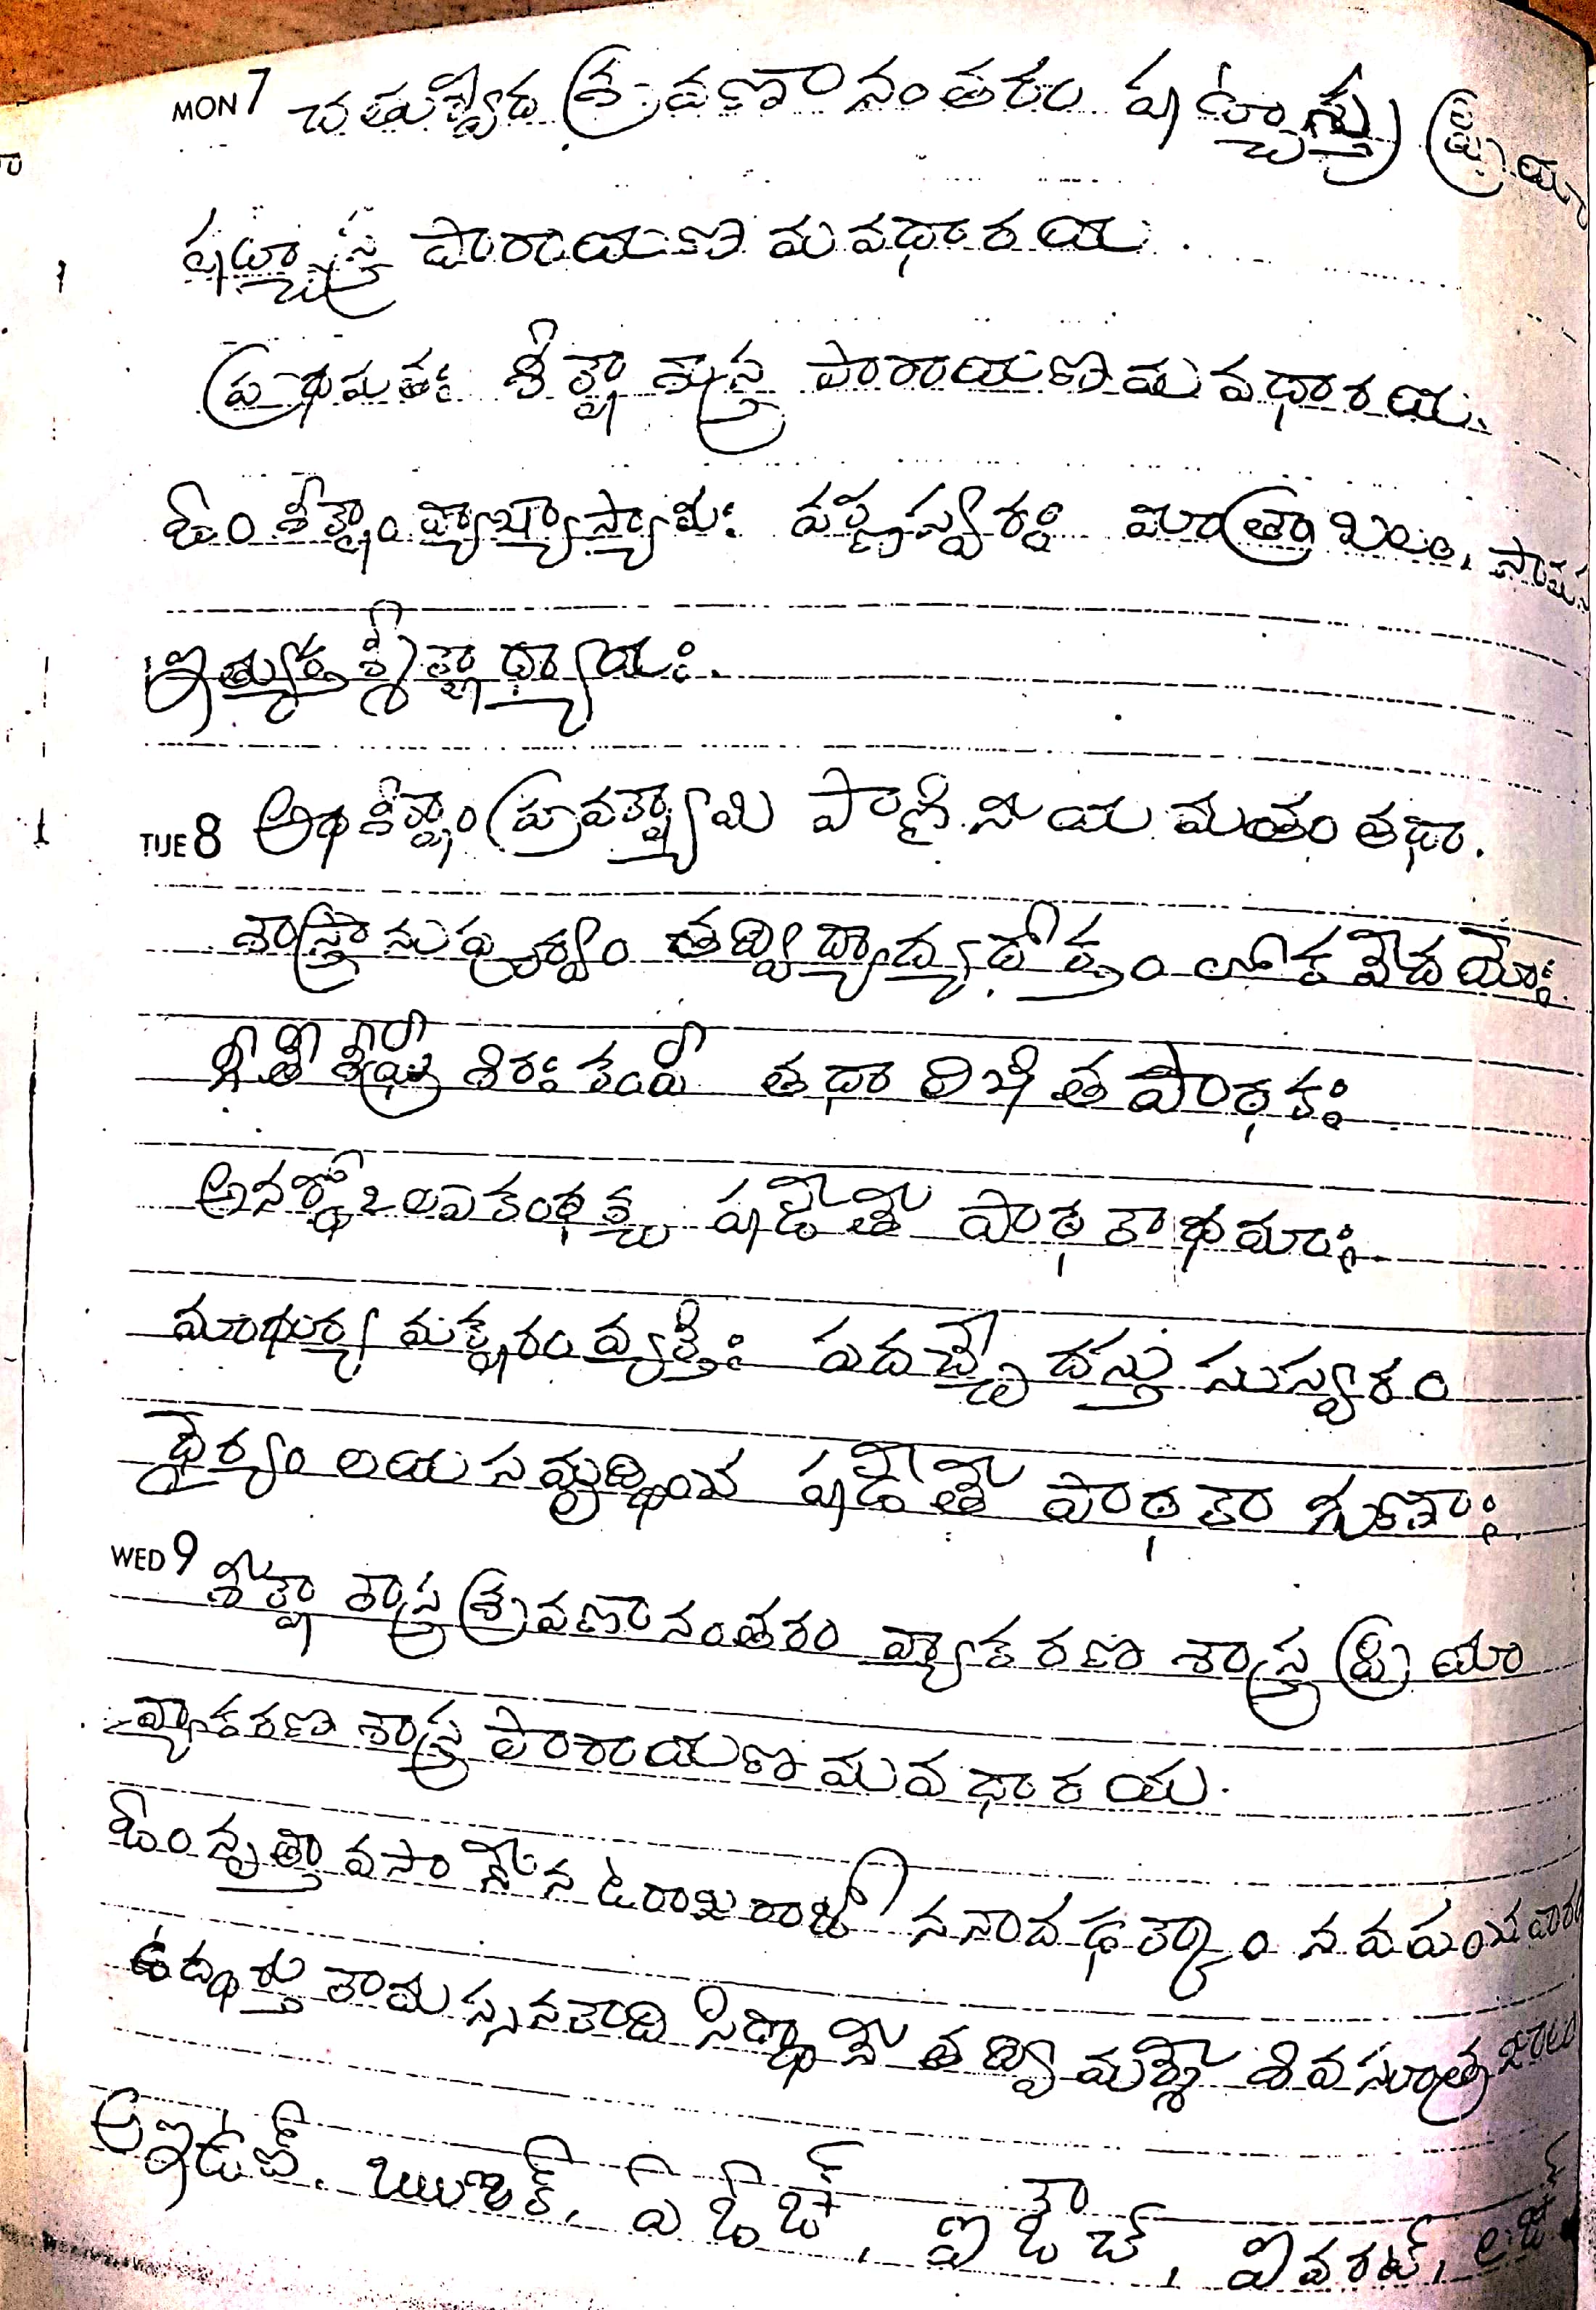 MON 7 చతుర్వేద శ్రవణానంతరం షట్ఛాస్త్ర ప్రియ
షట్ఛాస్త్ర పారాయణ మవధారయ.
ప్రథమతః శీక్షా శాస్త్ర పారాయణ మవధారయ.
ఓం శీక్షాం వ్యాఖ్యాస్యామః వర్ణస్వరః మాత్రా బలం,
ఇత్యుక్త శ్శీక్షాధ్యాయః.
TUE 8 అథ శీక్షాం ప్రవక్ష్యామి పాణినీయ మతం తథా.
శాస్త్రానుపూర్వ్యం తద్విద్యాద్యథోక్తం లోక వేదయోః
గీతీ శీఘ్రీ శిరః కంపీ తథా లిఖిత పాఠకః
అనర్థజ్ఞోఽల్పకంఠశ్చ షడేతే పాఠకాధమాః
మాధుర్య మక్షరం వ్యక్తిః పదచ్ఛేదస్తు సుస్వరం
ధైర్యం లయ సమృద్ధించ షడేతే పాఠకా గుణాః
WED 9 శీక్షా శాస్త్ర శ్రవణానంతరం వ్యాకరణ శాస్త్ర ప్రియా
వ్యాకరణ శాస్త్ర పారాయణ మవధారయ.
ఓం నృత్తావసానే నటరాజరాజో ననాద ఢక్కాం నవపంచవారం
ఉద్ధర్తు కామ స్సనకాది సిద్ధానే తద్విమర్శే శివసూత్రజాలం
అఇఉణ్. ఋఌక్, ఏఓఙ్, ఐఔచ్, హయవరట్, లణ్